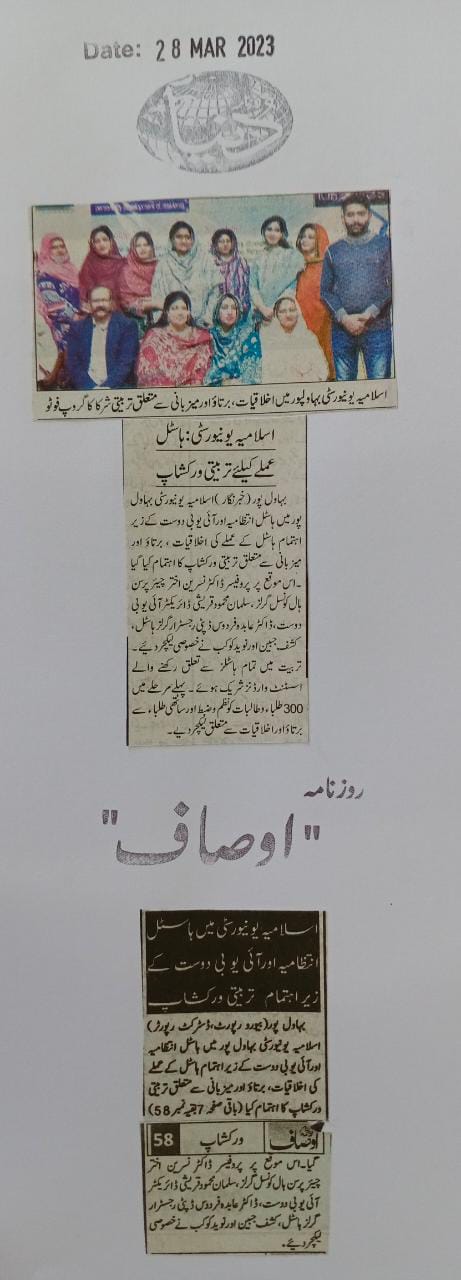 Date: 28 MAR 2023
دنیا
اسلامیہ یونیورسٹی بہاولپور میں اخلاقیات، برتاؤ اور میزبانی سے متعلق تربیتی شرکا کا گروپ فوٹو
اسلامیہ یونیورسٹی: ہاسٹل
عملے کیلئے تربیتی ورکشاپ
بہاول پور (خبرنگار) اسلامیہ یونیورسٹی بہاول
پور میں ہاسٹل انتظامیہ اور آئی یو بی دوست کے زیر
اہتمام ہاسٹل کے عملے کی اخلاقیات، برتاؤ اور
میزبانی سے متعلق تربیتی ورکشاپ کا اہتمام کیا گیا
۔ اس موقع پر پروفیسر ڈاکٹر نسرین اختر چیئرپرسن
ہال کونسل گرلز، سلمان محمود قریشی ڈائریکٹر آئی یو بی
دوست، ڈاکٹر عابدہ فردوس ڈپٹی رجسٹرار گرلز ہاسٹل،
کشف جبین اور نوید کوکب نے خصوصی لیکچر دیئے۔
تربیت میں تمام ہاسٹلز سے تعلق رکھنے والے
اسسٹنٹ وارڈنز شریک ہوئے۔ پہلے مرحلے میں
300 طلباء و طالبات کو نظم و ضبط اور ساتھی طلباء سے
برتاؤ اور اخلاقیات سے متعلق لیکچر دیے۔
روزنامہ
"اوصاف"
اسلامیہ یونیورسٹی میں ہاسٹل
انتظامیہ اور آئی یو بی دوست کے
زیر اہتمام تربیتی ورکشاپ
بہاول پور (بیورو رپورٹ، ڈسٹرکٹ رپورٹر)
اسلامیہ یونیورسٹی بہاول پور میں ہاسٹل انتظامیہ
اور آئی یو بی دوست کے زیر اہتمام ہاسٹل کے عملے
کی اخلاقیات، برتاؤ اور میزبانی سے متعلق تربیتی
ورکشاپ کا اہتمام کیا (باقی صفحہ 7 بقیہ نمبر 58)
اوصاف ورکشاپ 58
گیا۔ اس موقع پر پروفیسر ڈاکٹر نسرین اختر
چیئرپرسن ہال کونسل گرلز، سلمان محمود قریشی ڈائریکٹر
آئی یو بی دوست، ڈاکٹر عابدہ فردوس ڈپٹی رجسٹرار
گرلز ہاسٹل، کشف جبین اور نوید کوکب نے خصوصی
لیکچر دیئے۔